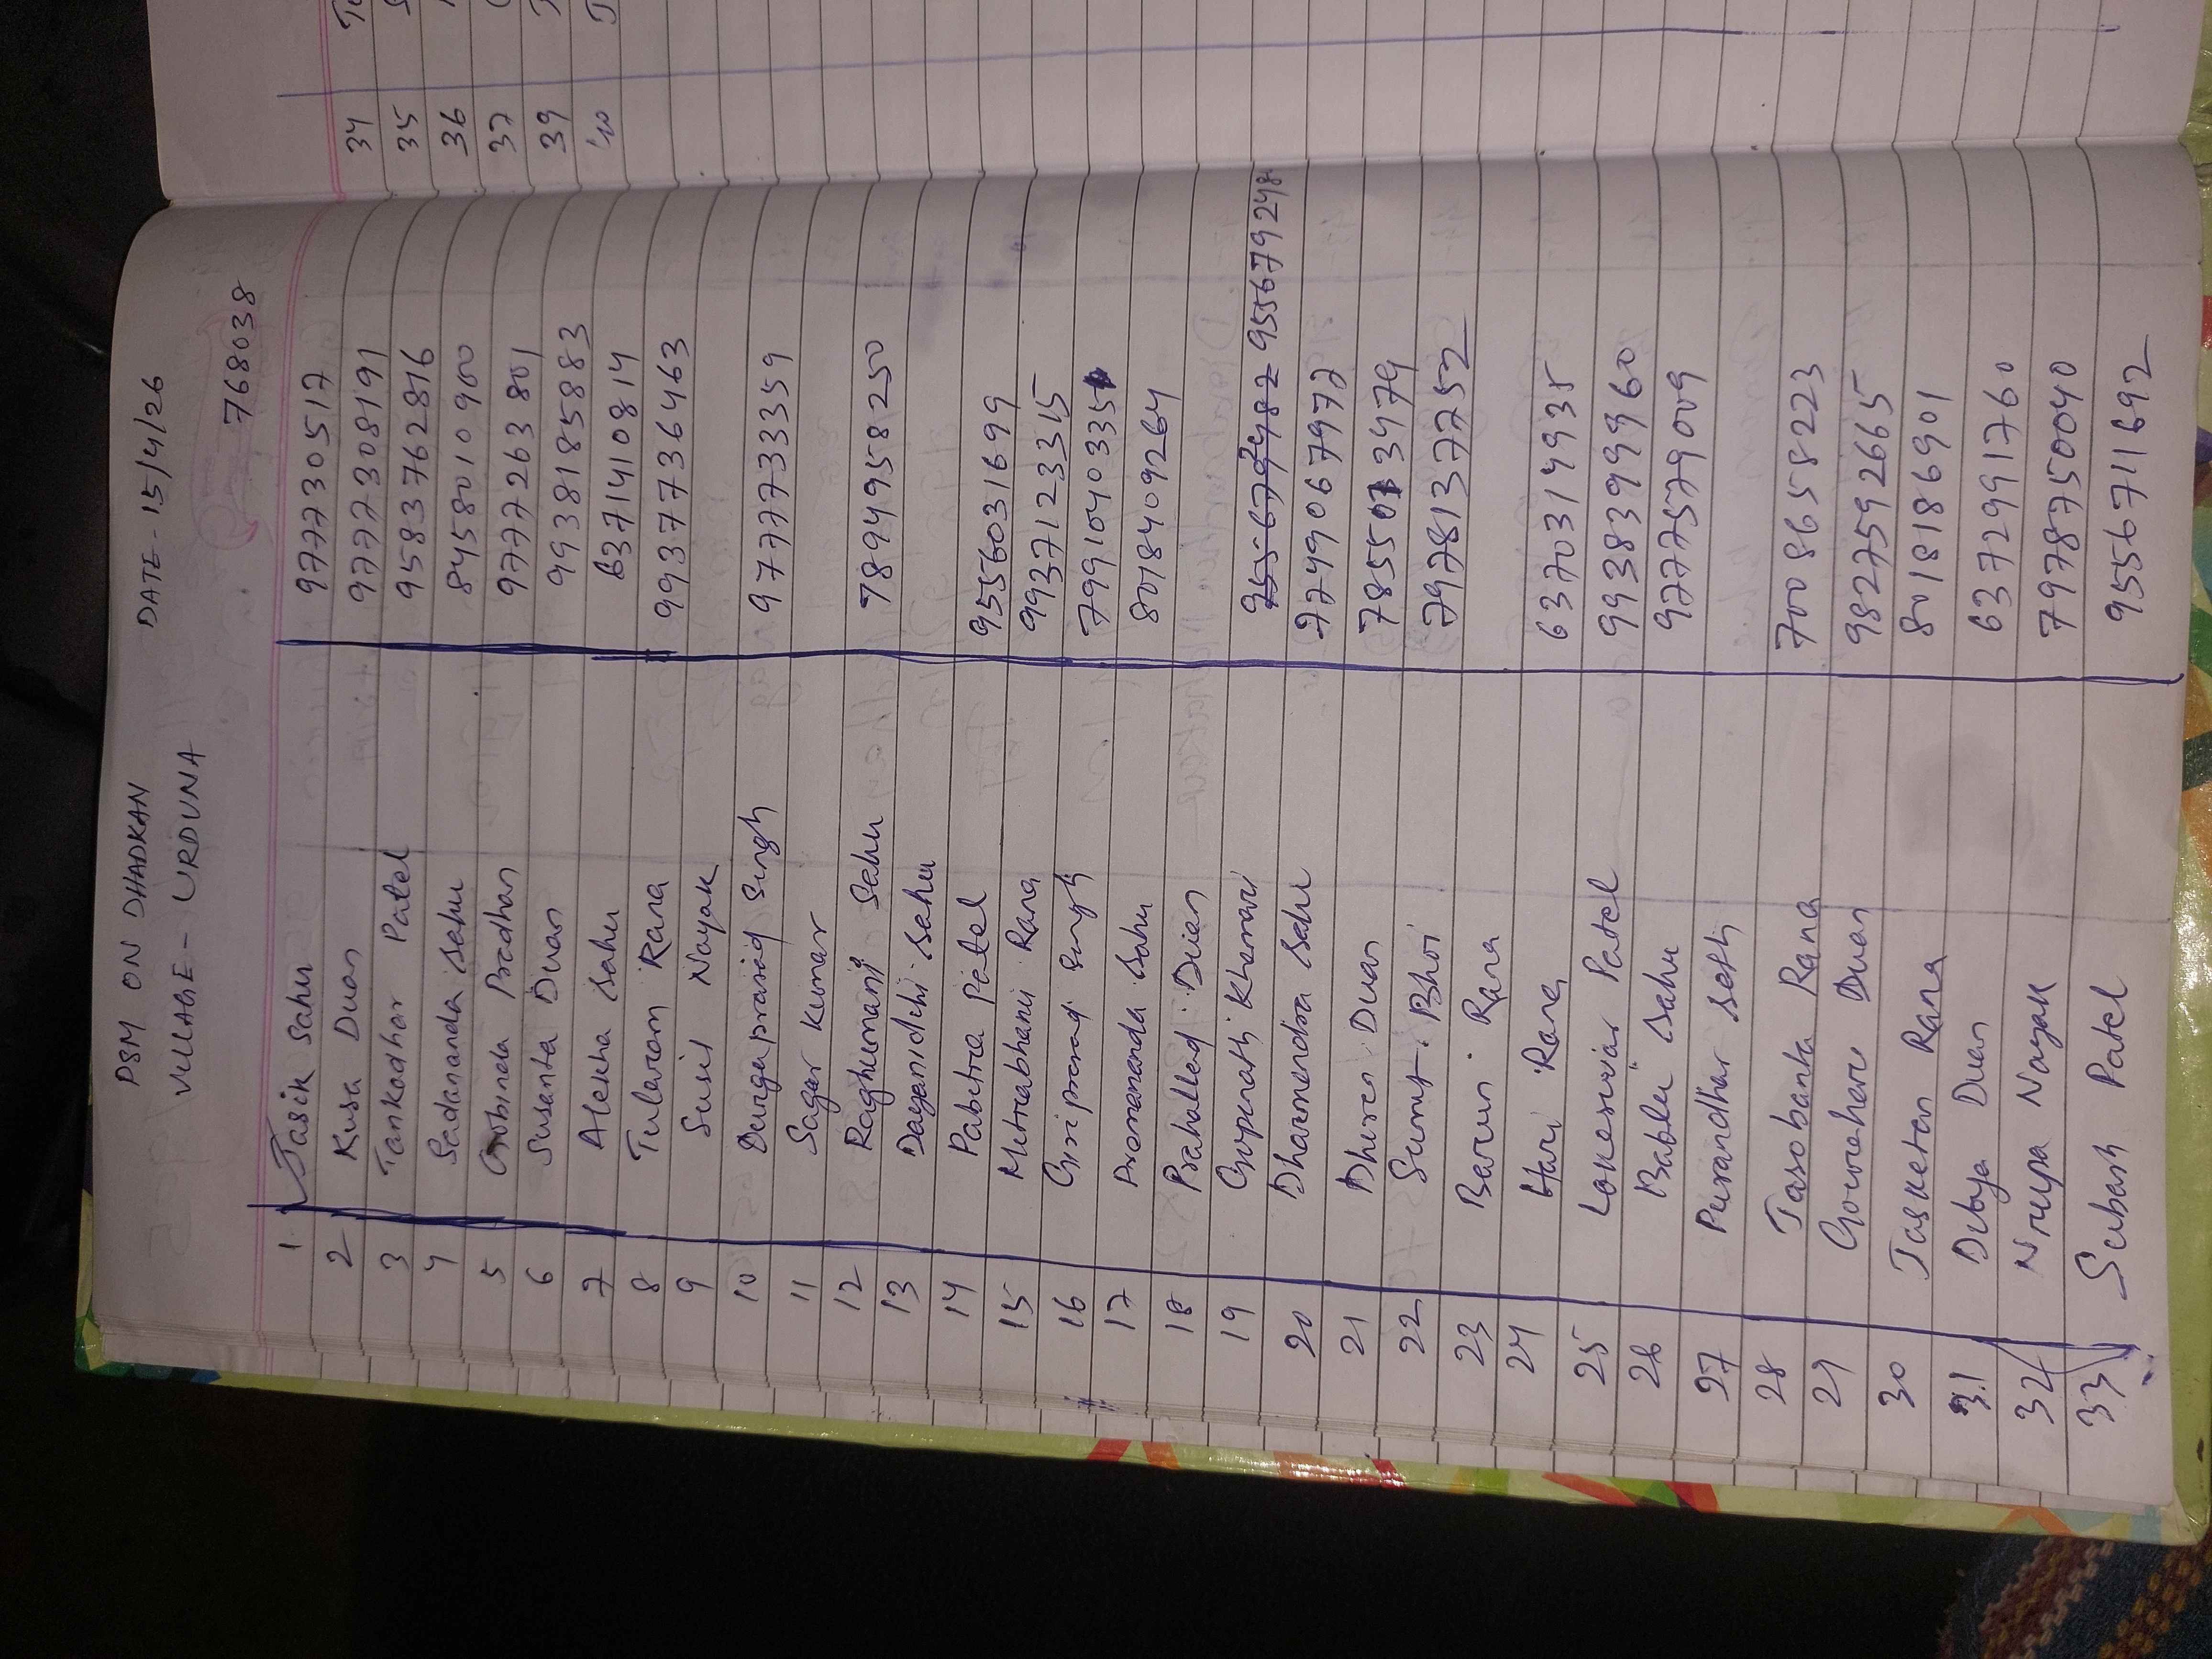 PSM ON DHADKAN DATE - 15/4/26
VILLAGE - URDUNA 768038
1 Jasik Sahu 9777730517
2 Kusa Duan 9777308191
3 Tankadhar Patel 9583762816
4 Sadananda Sahu 8458010900
5 Gobinda Pradhan 9777263801
6 Susanta Duan 9938185883
7 Alekha Sahu 6371410814
8 Tularam Rana 9937736463
9 Susil Nayak
10 Durgaprasad Singh 9777733359
11 Sagar Kumar
12 Raghumani Sahu 7894958250
13 Dayanidhi Sahu
14 Pabitra Patel 9556031699
15 Mitrabhanu Rana 9937123315
16 Giriprasad Singh 799104033
17 Promananda Sahu 8018409264
18 Prahallad Duan
19 Gupanath Khamari 9556792248
20 Dharmendra Sahu 7749067977
21 Dhiren Duan 7855013479
22 Sumit Bhoi 7978137752
23 Barun Rana
24 Hari Rana 6370314935
25 Lokeswar Patel 9938399960
26 Bablu Sahu 9777579009
27 Purandhar Seth
28 Jasobanta Rana 7008658223
29 Gourahari Duan 9827592665
30 Jasketan Rana 8018186901
31 Dibya Duan 6372991760
32 Nrupa Nayak 7978750040
33 Subash Patel 9556711692
34
35
36
37
39
40